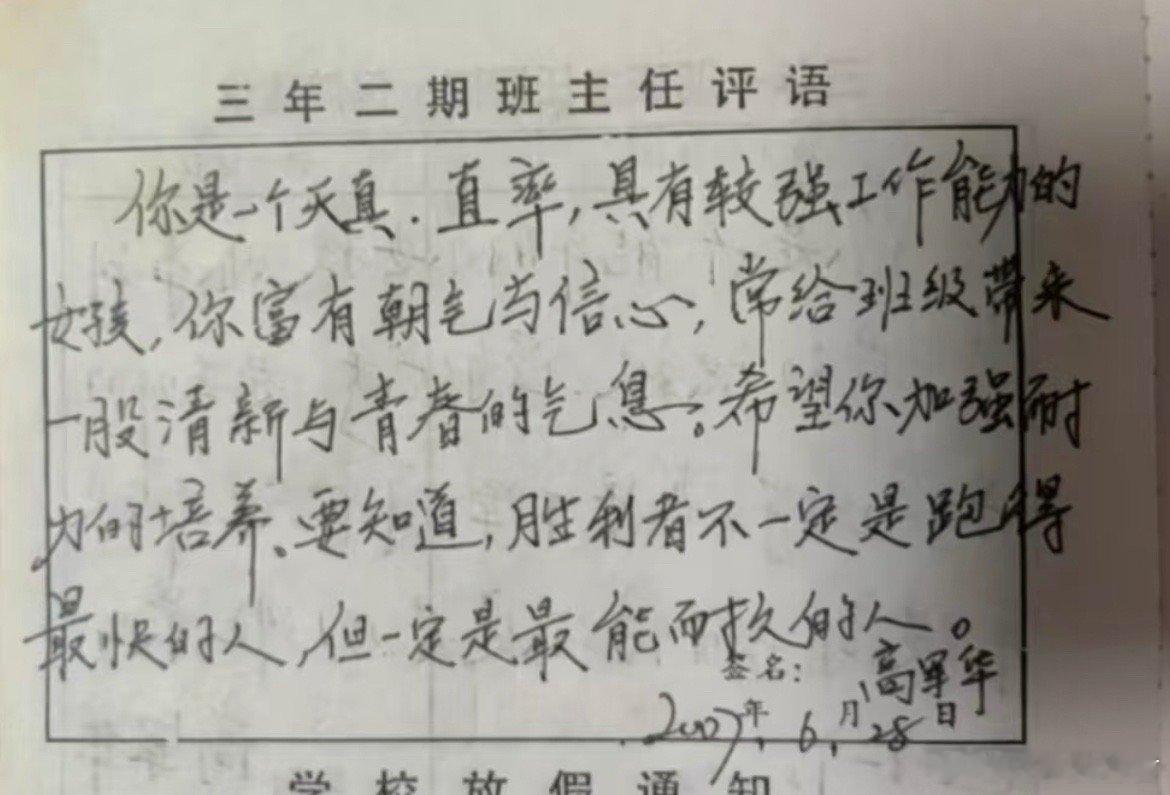 三年二期班主任评语
你是一个天真.直率,具有较强工作能力的
女孩,你富有朝气与信心,常给班级带来
一股清新与青春的气息。希望你加强耐
力的培养。要知道,胜利者不一定是跑得
最快的人,但一定是最能耐久的人。
签名:高军华
2007年.6.月28日
学校放假通知